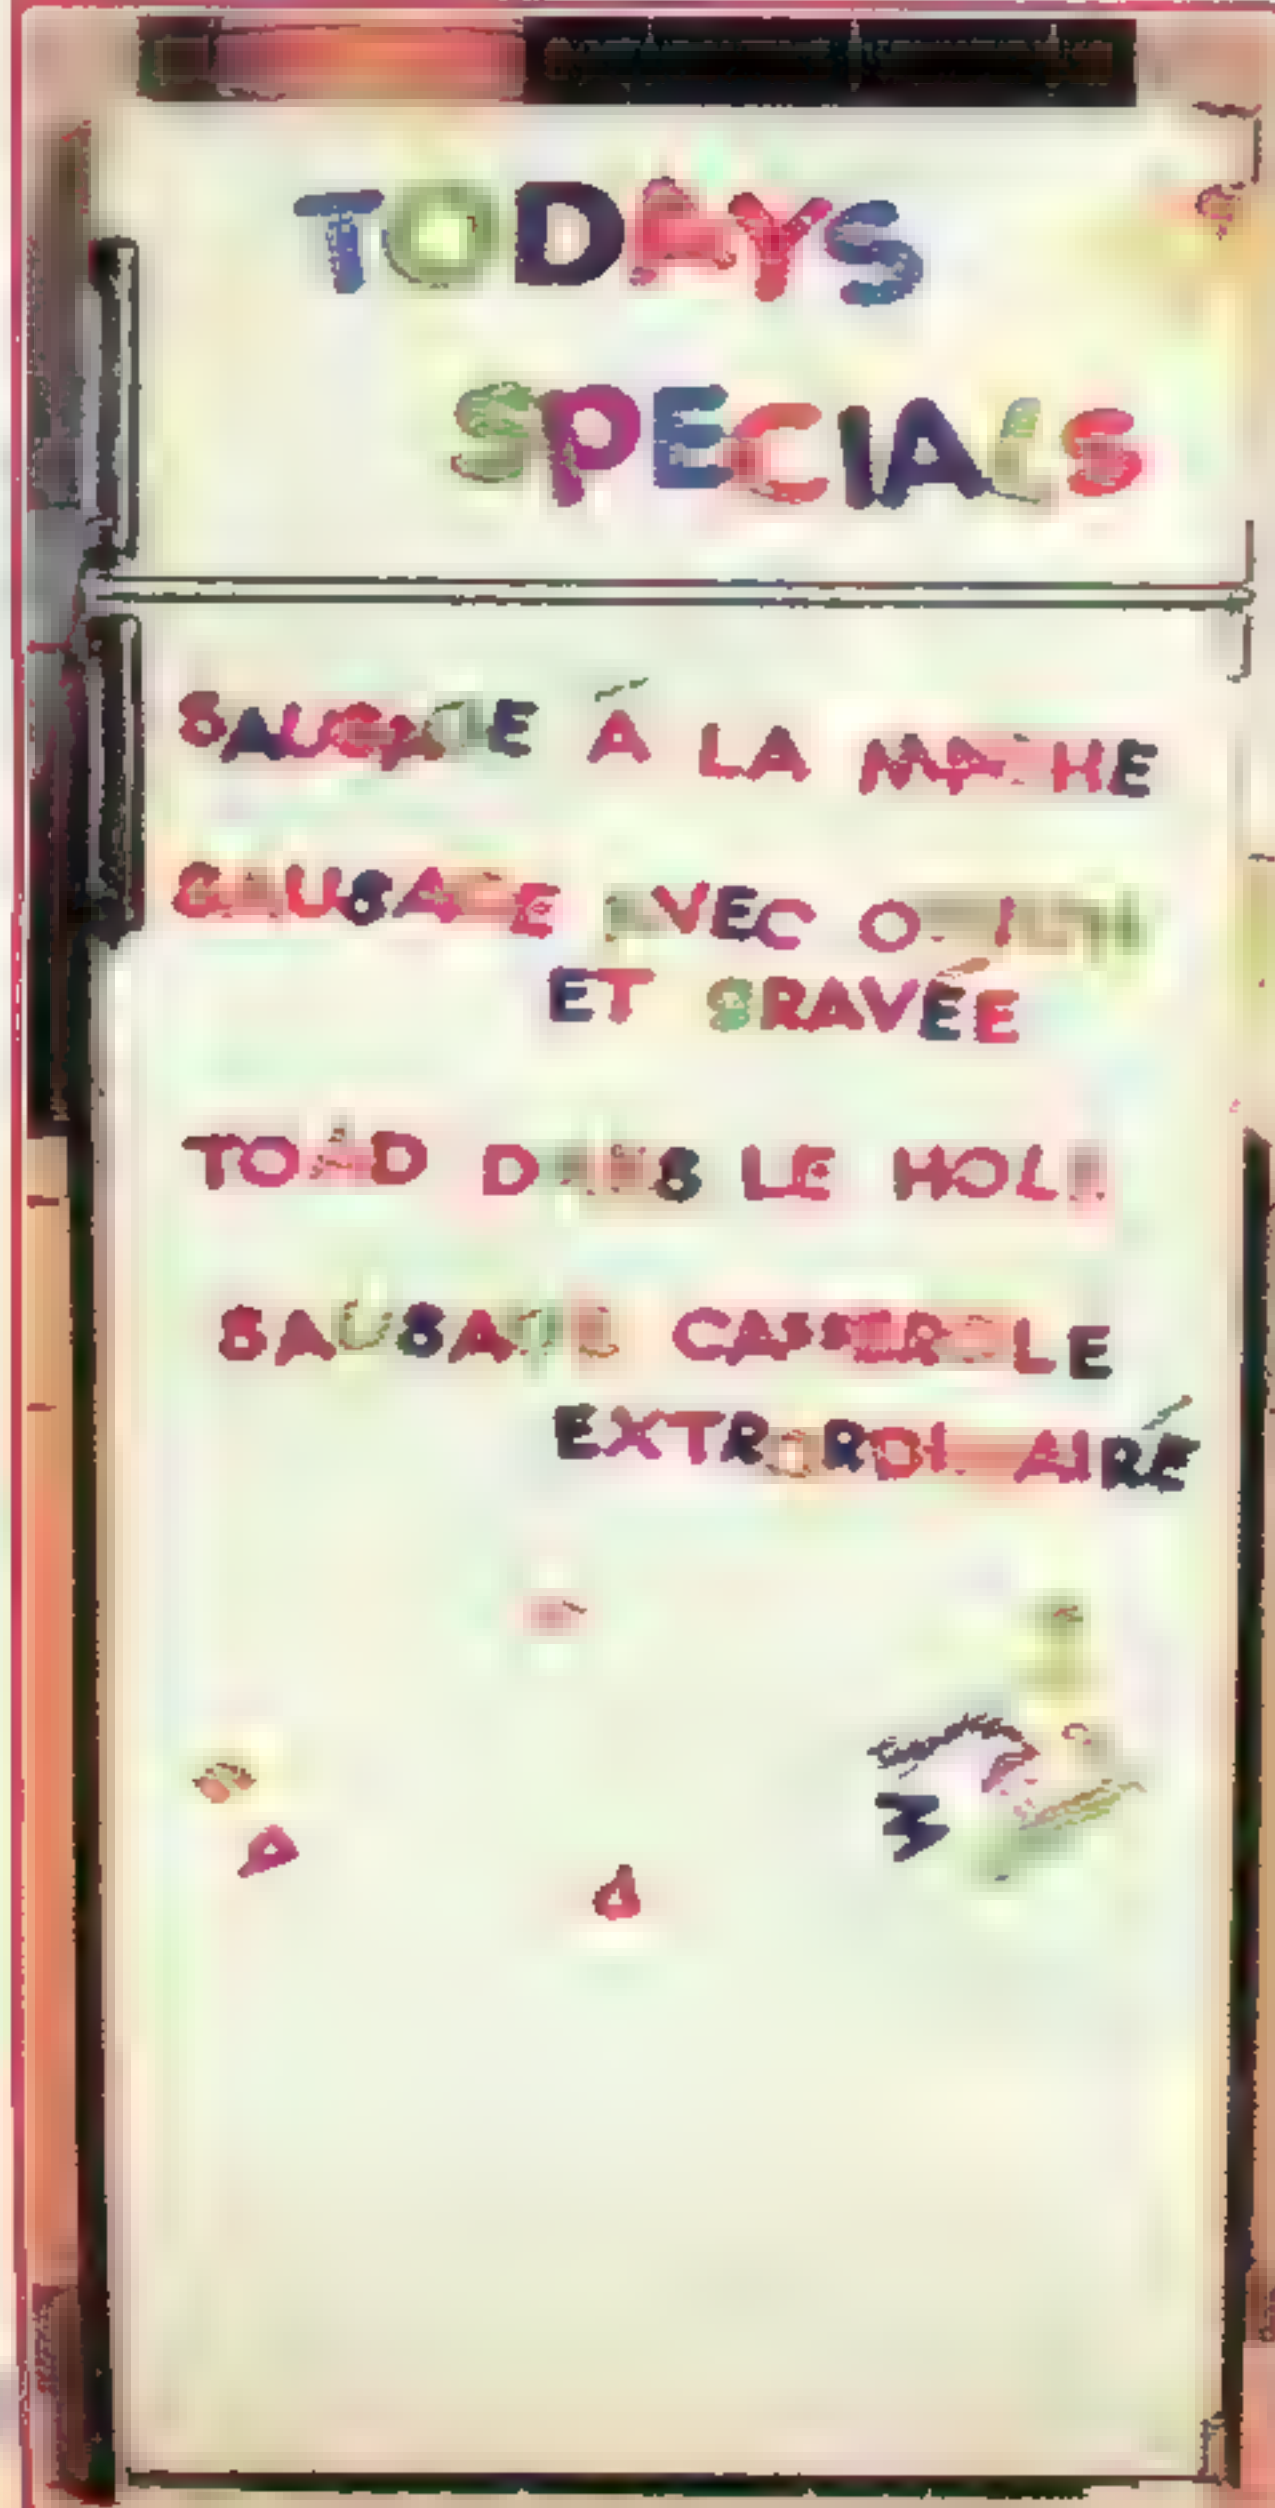 TODAYS
SPECIALS
SAUSAGE Á LA MASHE
SAUSAGE AVEC ONION
ET GRAVÉE
TOAD DANS LE HOLE
SAUSAGE CASSEROLE
EXTRORDINAIRÉ